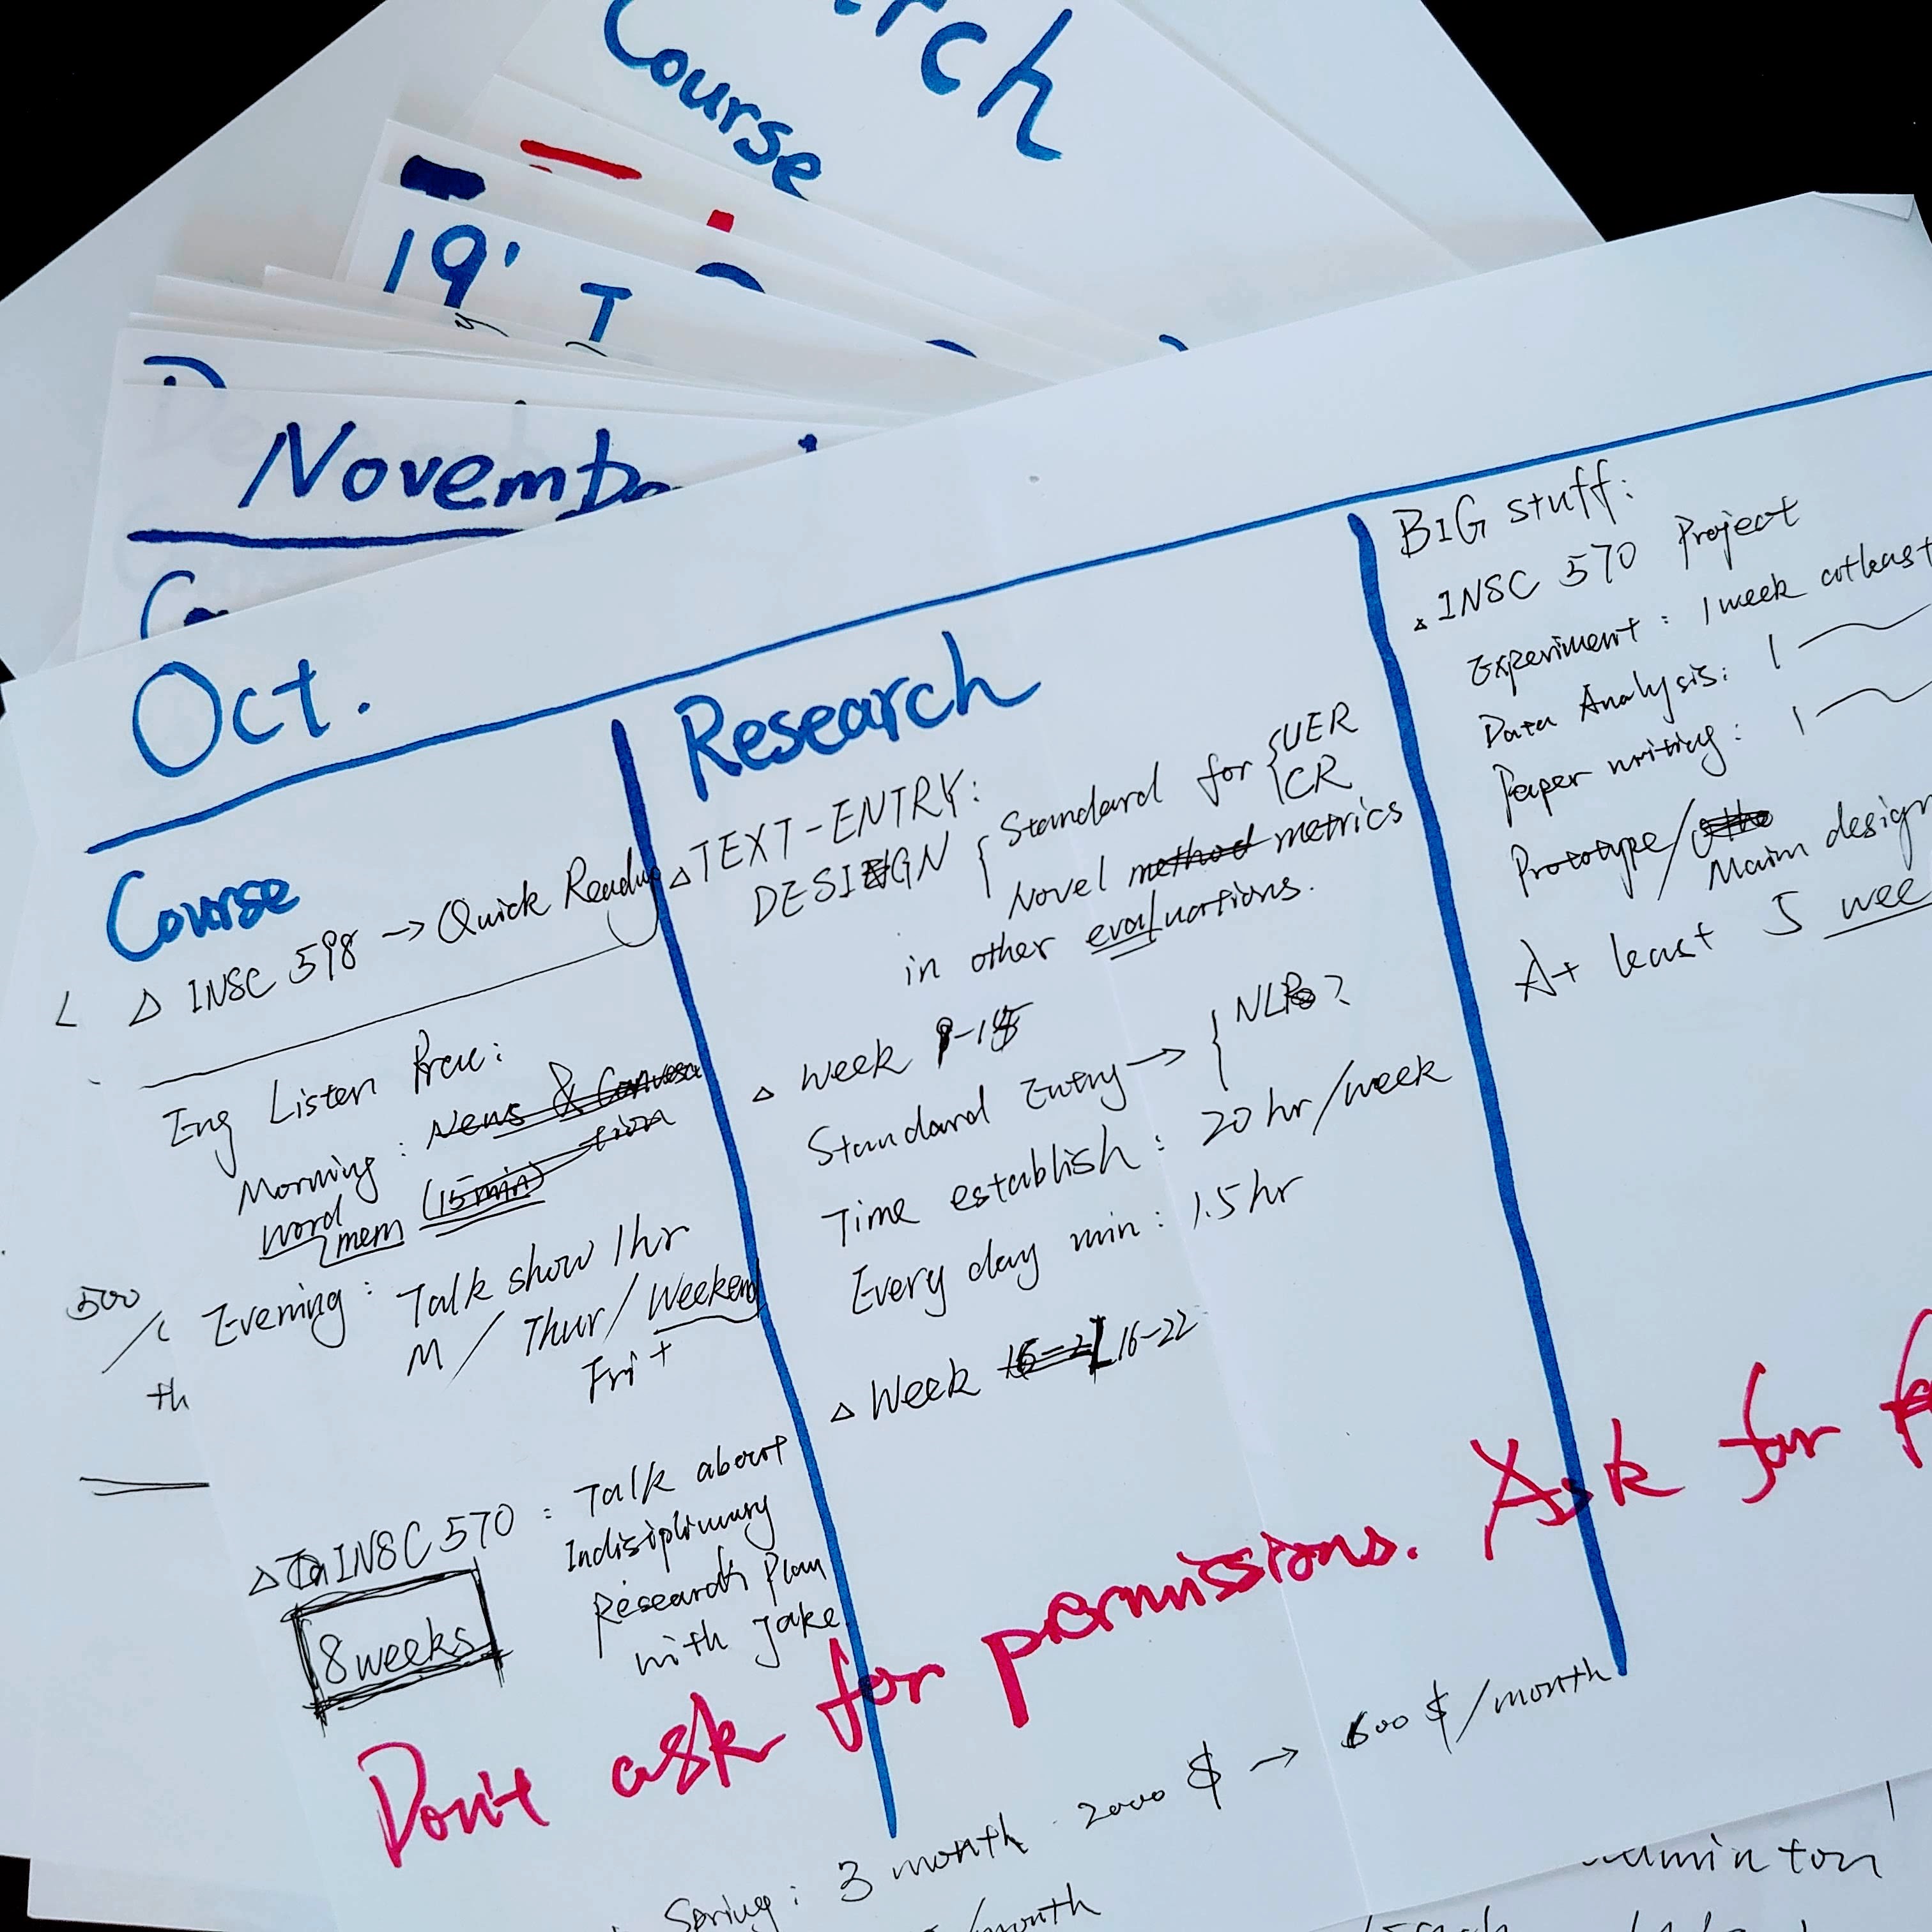 Course
19'
Oct.
Course
△ INSC 598 → Quick
Eng Listen
Morning : News &
word (15min)
mem
Evening : Talk show 1hr
M / Thur / Weekend
Fri +
△ INSC 570 : Talk about
Indisiplinary
Research Plan
with Jake
8 weeks
500
th
Research
△ TEXT-ENTRY:
DESIGN { Standard for { UER
CR
Novel method metrics
in other evaluations.
△ Week
Standard Entry → { NLP ?
Time establish : 20 hr/week
Every day min : 1.5 hr
△ Week 16-22
BIG stuff:
△ INSC 570 Project
Experiment : 1 week atleast
Data Analysis: 1
Paper writing : 1
Prototype/
Main design
At least 5
Don't ask for permissions. Ask for
Spring : 3 month 2000 $ → 600 $/month
/month